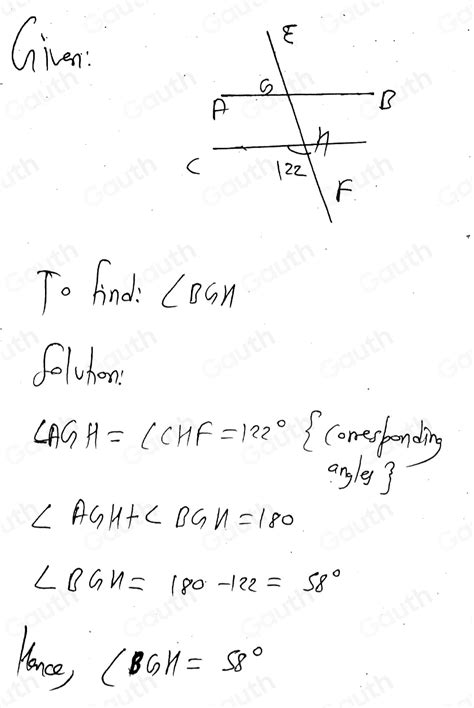 Given:
E
G
A
B
H
C
122
F
To find: ∠BGH
Solution:
∠AGH = ∠CHF = 122° {corresponding
angles}
∠ AGH + ∠ BGH = 180
∠ BGH = 180 - 122 = 58°
Hence, ∠BGH = 58°
Gauth